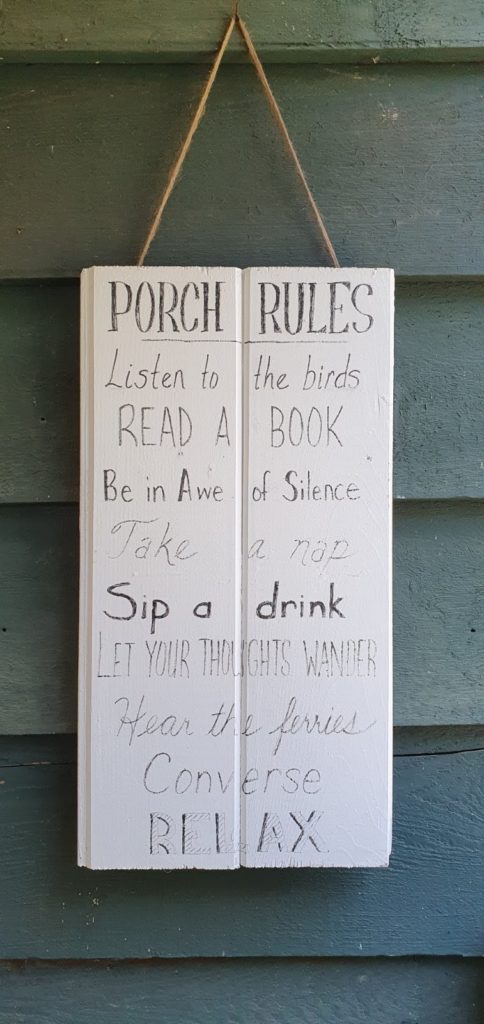 PORCH RULES
Listen to the birds
READ A BOOK
Be in Awe of Silence
Take a nap
Sip a drink
LET YOUR THOUGHTS WANDER
Hear the ferries
Converse
RELAX